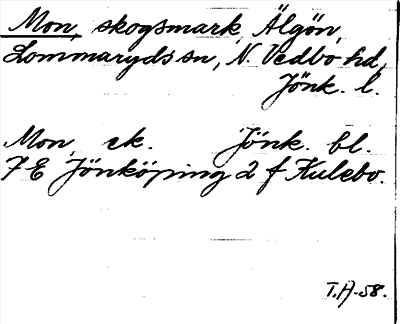 Mon, skogsmark, Älgön,
Lommaryds sn, N. Vedbo hd,
Jönk. l.
Mon, ek. Jönk. bl.
7 E Jönköping 2 f Kulebo.
T.A-58.